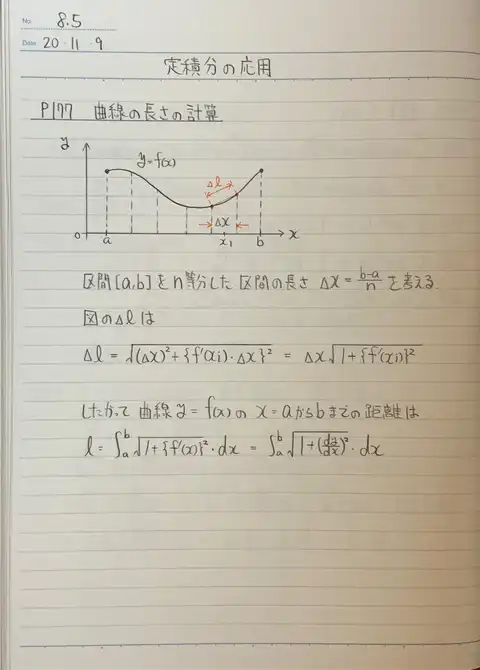 No. 8.5
Date 20・11・9
定積分の応用
P177 曲線の長さの計算
y
y=f(x)
Δl
Δx
0 a x₁ b x
区間[a,b]をn等分した区間の長さ Δx = (b-a)/n を考える.
図のΔlは
Δl = √((Δx)²+{f'(xi)・Δx}²) = Δx√(1+{f'(xi)}²)
したがって 曲線 y=f(x)の x=aからbまでの距離は
l = ∫ₐᵇ √(1+{f'(x)}²)・dx = ∫ₐᵇ √(1+(dy/dx)²)・dx